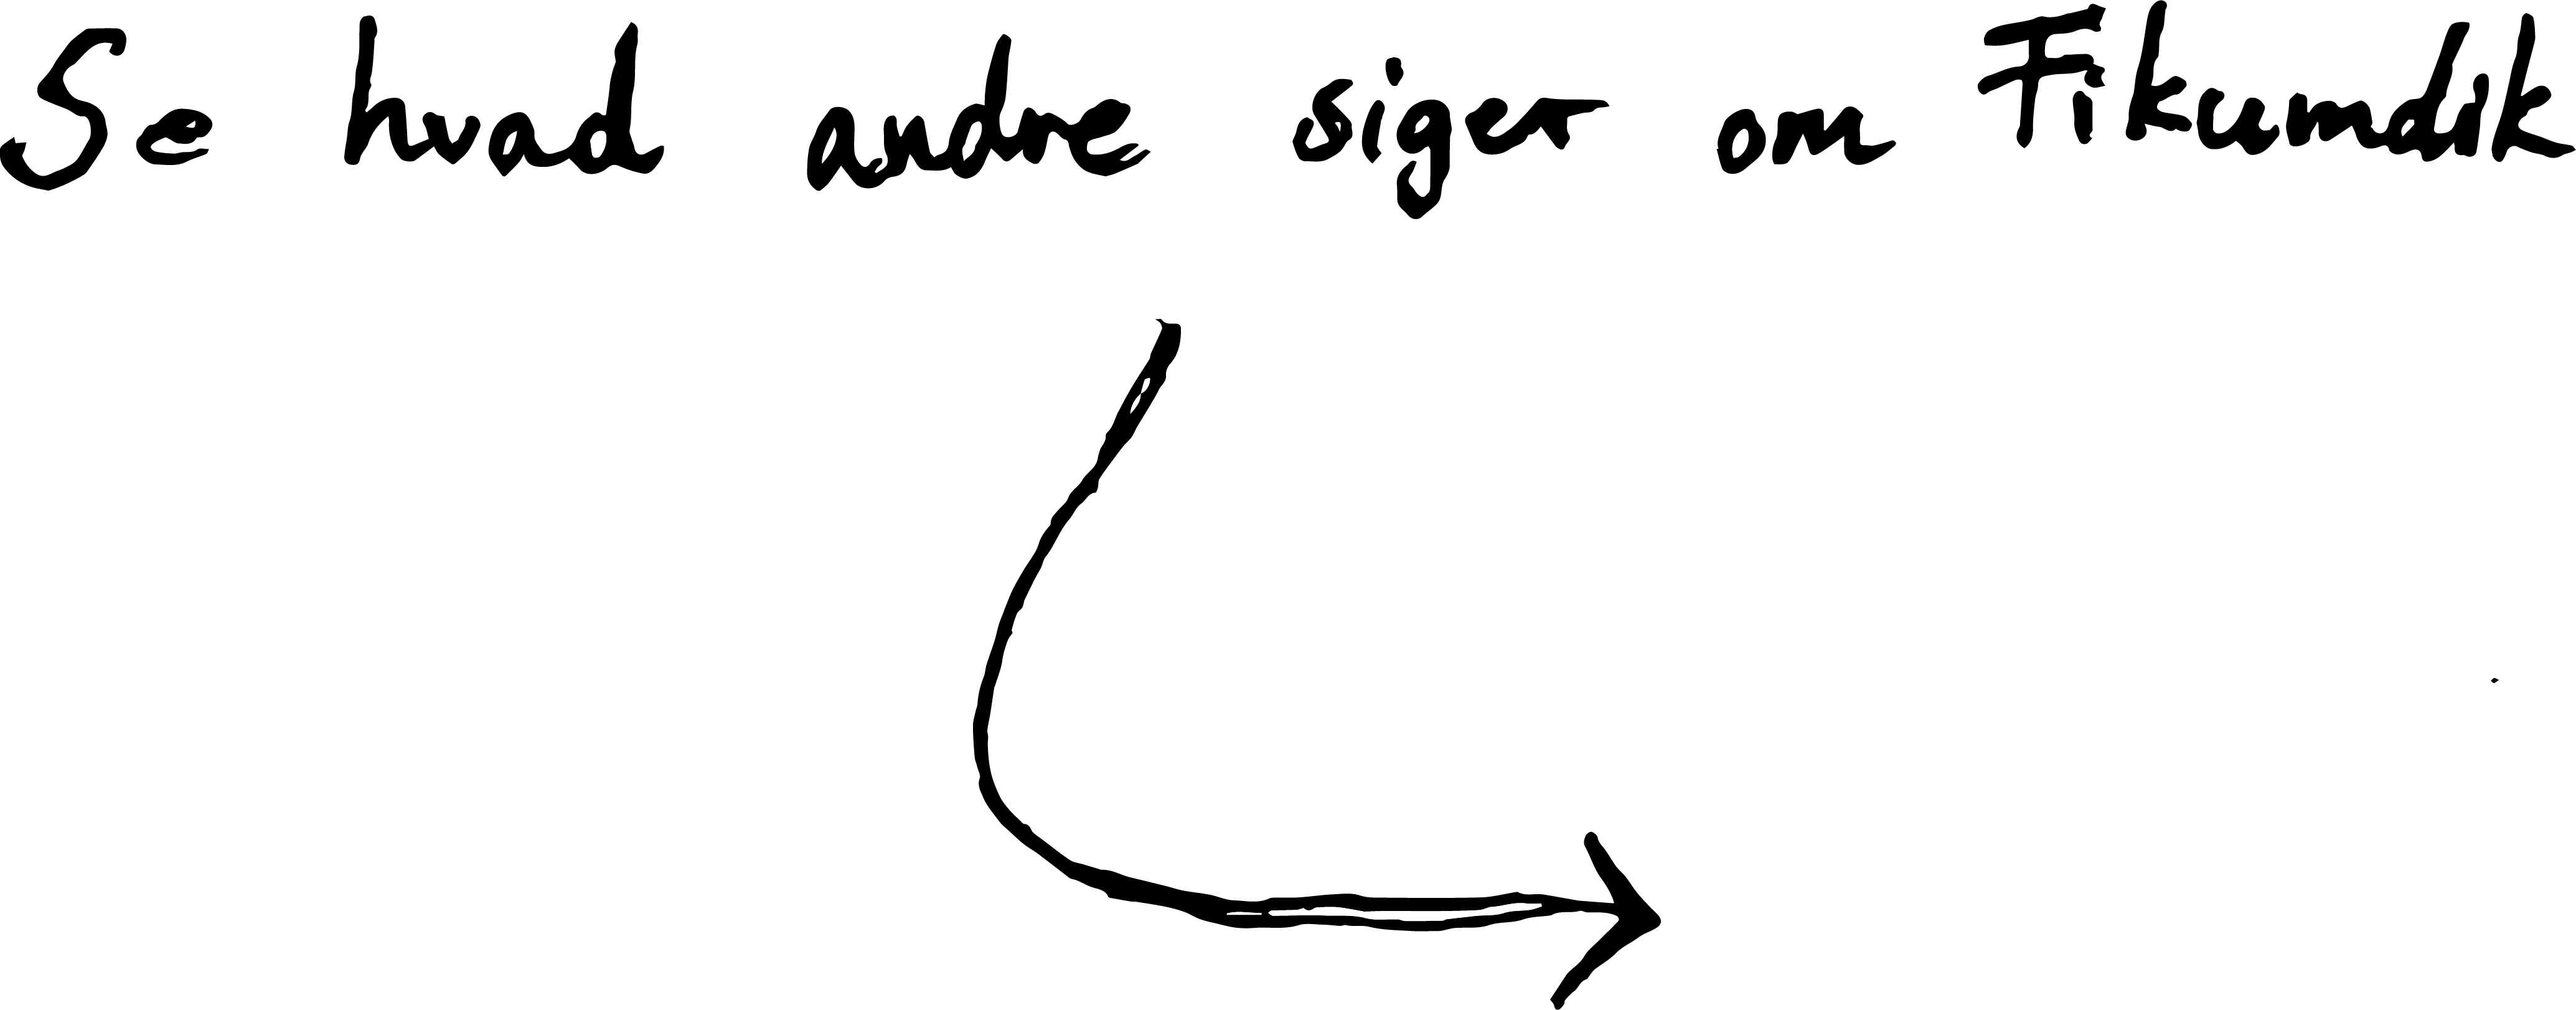 Se hvad andre siger om Fikumdik